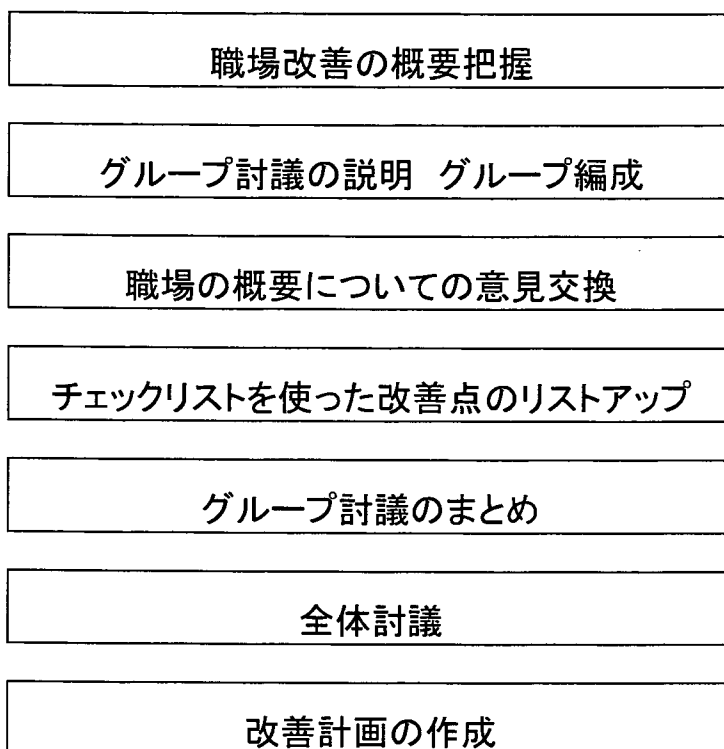 職場改善の概要把握
グループ討議の説明 グループ編成
職場の概要についての意見交換
チェックリストを使った改善点のリストアップ
グループ討議のまとめ
全体討議
改善計画の作成